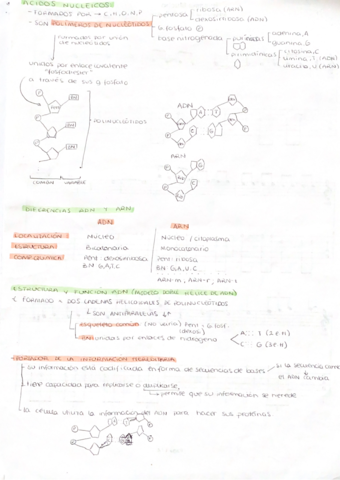 ÁCIDOS NUCLEICOS
- FORMADOS POR → C, H, O, N, P
pentosa
ribosa (ARN)
desoxirribosa (ADN)
- SON POLÍMEROS DE NUCLEÓTIDOS
ác. fosfórico P
formados por unión de nucleósidos
base nitrogenada
púricas
adenina, A
guanina, G
pirimidínicas
citosina, C
timina, T (ADN)
uracilo, U (ARN)
unidos por enlace covalente
"fosfodiéster"
a través de sus g. fosfato
ADN
POLINUCLEÓTIDOS
ARN
COMÚN VARIABLE
DIFERENCIAS ADN Y ARN:
ADN ARN
LOCALIZACIÓN: Núcleo Núcleo / citoplasma
ESTRUCTURA: Bicatenaria Monocatenaria
COMP. QUÍMICA: Pent. desoxirribosa Pent. ribosa
BN G,A,T,C BN G,A,U,C
ARN-m, ARN-r, ARN-t
ESTRUCTURA Y FUNCIÓN ADN (MODELO DOBLE HÉLICE DE ADN)
FORMADO = DOS CADENAS HELICOIDALES DE POLINUCLEÓTIDOS
↳ SON ANTIPARALELAS
esqueleto común (no varía) Pent - g. fosf.
BN unidas por enlaces de hidrógeno
A::T (2 E.H)
C:::G (3 E.H)
PORTADOR DE LA INFORMACIÓN HEREDITARIA
su información está codificada en forma de secuencias de bases
si la secuencia cambia
el ADN cambia
tiene capacidad para copiarse o duplicarse
→ permite que su información se herede
la célula utiliza la información del ADN para hacer sus proteínas